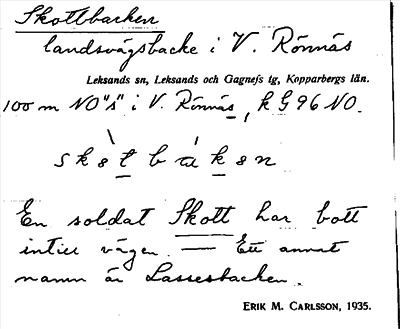 Skottbacken
landsvägsbacke i V. Rönnäs
Leksands sn, Leksands och Gagnefs tg, Kopparbergs län.
100 m NO "s" i V. Rönnäs, k G 96 NO.
En soldat Skott har bott
intill vägen. — Ett annat
namn är Lassesbacken.
ERIK M. CARLSSON, 1935.